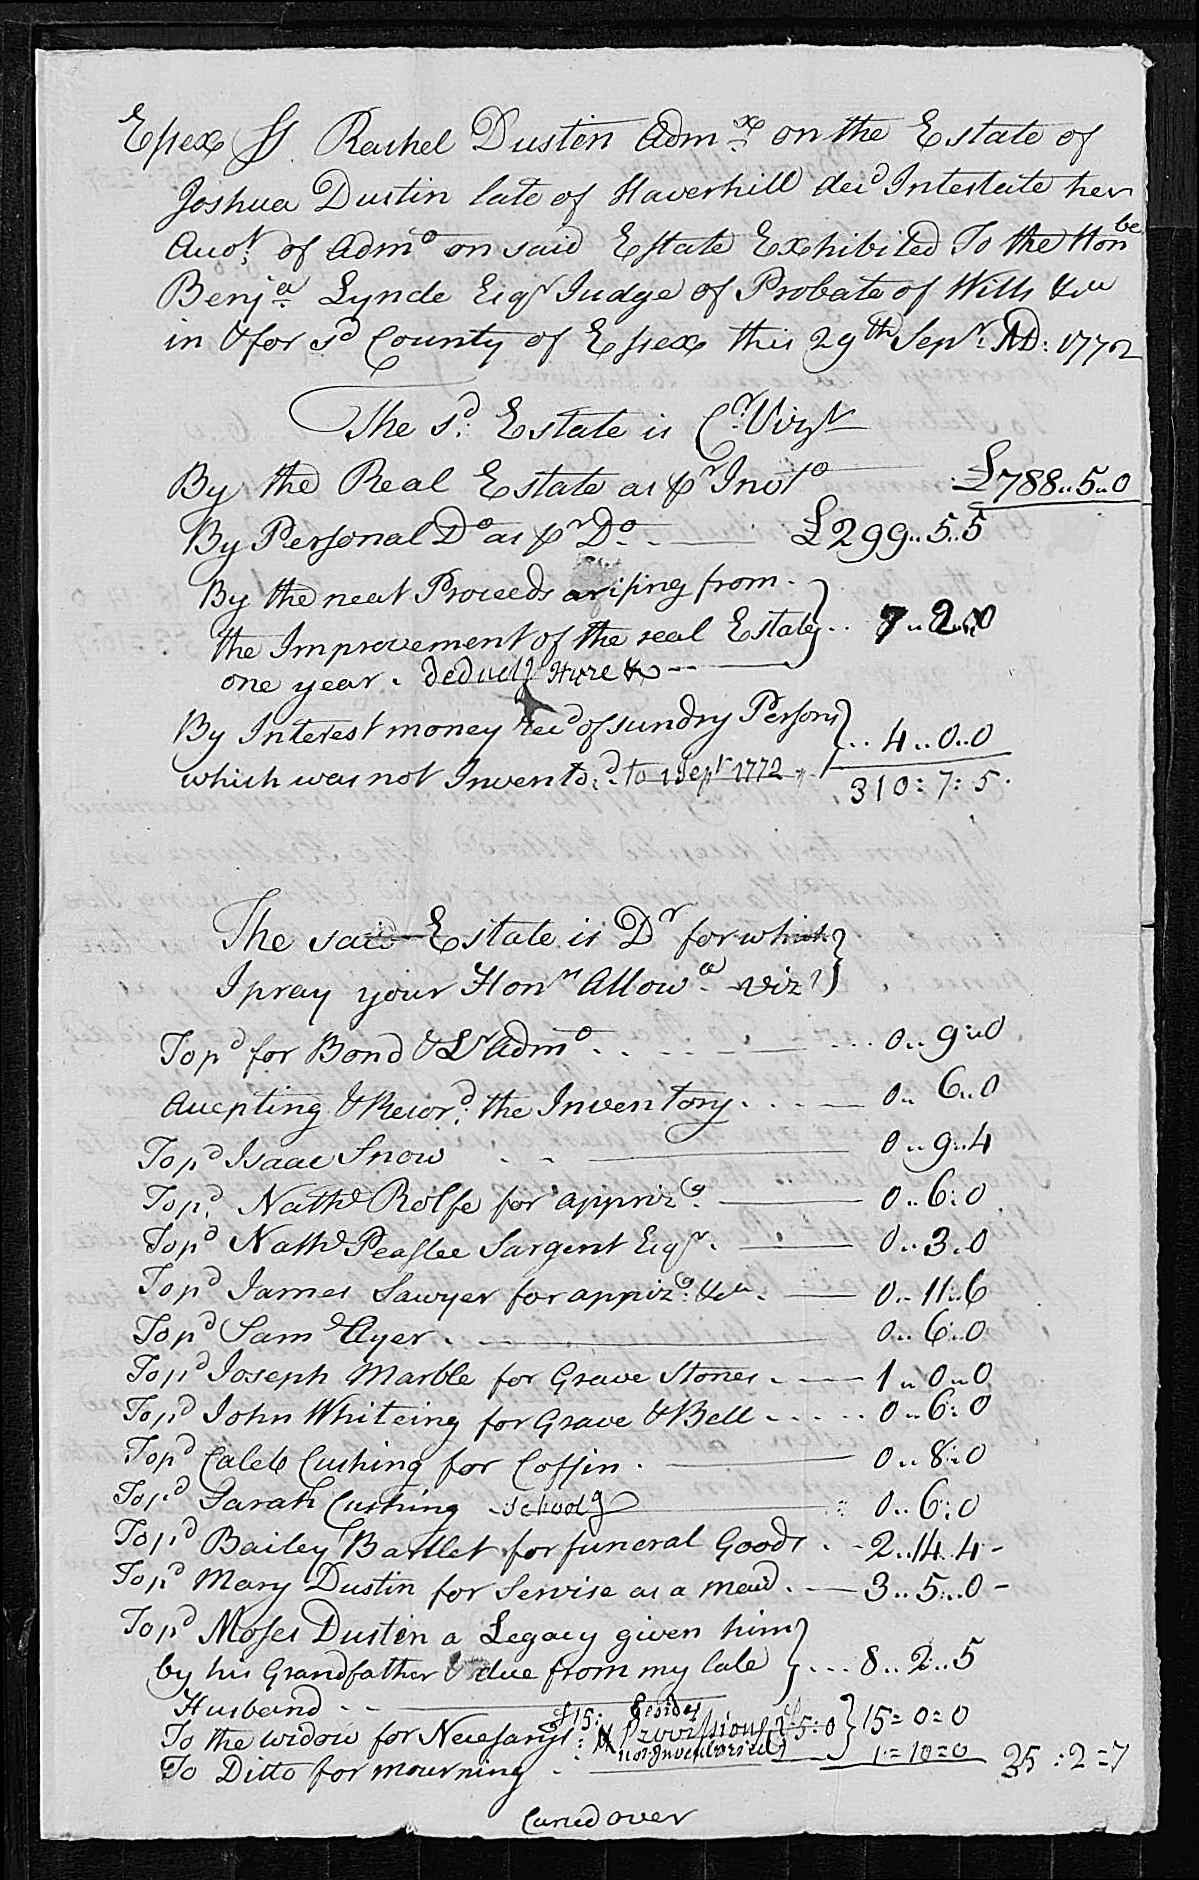 Essex Ss. Rachel Dustin Admx on the Estate of
Joshua Dustin late of Haverhill decd Intestate her
Accot. of Admo on said Estate Exhibited To the Honbe
Benja Lynde Esqr Judge of Probate of Wills &ca
in & for sd County of Essex this 29th Sepr. AD: 1772
The sd. Estate is Cr. Vizt
By the Real Estate as pr Invto £788..5..0
By Personal Do as pr Do £299..5..5
By the neat Proceeds arising from
the Improvement of the real Estate } 7..2..0
one year. deductg Hyre &
By Interest money recd of sundry Persons }
4..0..0
which was not Inventod. to 1 Sept 1772
310:7:5.
The said Estate is Dr for which }
I pray your Honrs Allowa. viz }
To pd for Bond & Lr Admo 0..9..0
Accepting & Recordd. the Inventory 0..6..0
To pd Isaac Snow 0..9..4
To pd. Nathl Rolfe for apprizg. 0..6..0
To pd Nathl Peaslee Sargent Esqr. 0..3..0
To pd James Sawyer for apprizg. &ca. 0..11..6
To pd Saml Ayer 0..6..0
To pd Joseph Marble for Grave Stones 1..0..0
To pd John Whiteing for Grave & Bell 0..6..0
To pd Caleb Cushing for Coffin 0..8..0
To pd Sarah Cushing schoolg 0..6..0
To pd Bailey Bartlet for funeral Goods 2..14..4
To pd Mary Dustin for Servise as a maid 3..5..0
To pd Moses Dustin a Legacy given him }
by his Grandfather & due from my late } 8..2..5
Husband
To the widow for Necesarys £15: besides Provissions 5:0 not Inventoried } 15=0=0
To Ditto for mourning 1=10=0 35:2=7
Carried over